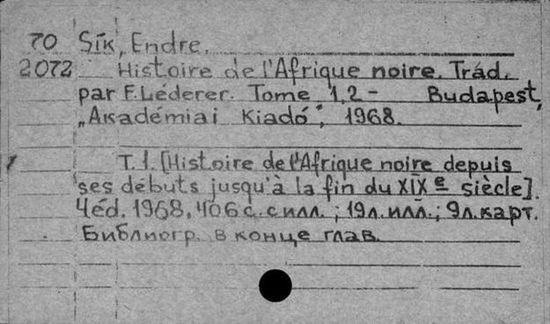 70 Sík, Endre.
2072 Histoire de l'Afrique noire. Trád.
par F. Léderer. Tome 1,2 – Budapest,
„Akadémiai Kiadó", 1968.
T.1. [Histoire de l'Afrique noire depuis
ses débuts jusqu'à la fin du XIXe siècle].
4éd. 1968, 406 с. с илл.; 19л. илл.; 9л. карт.
Библиогр. в конце глав.